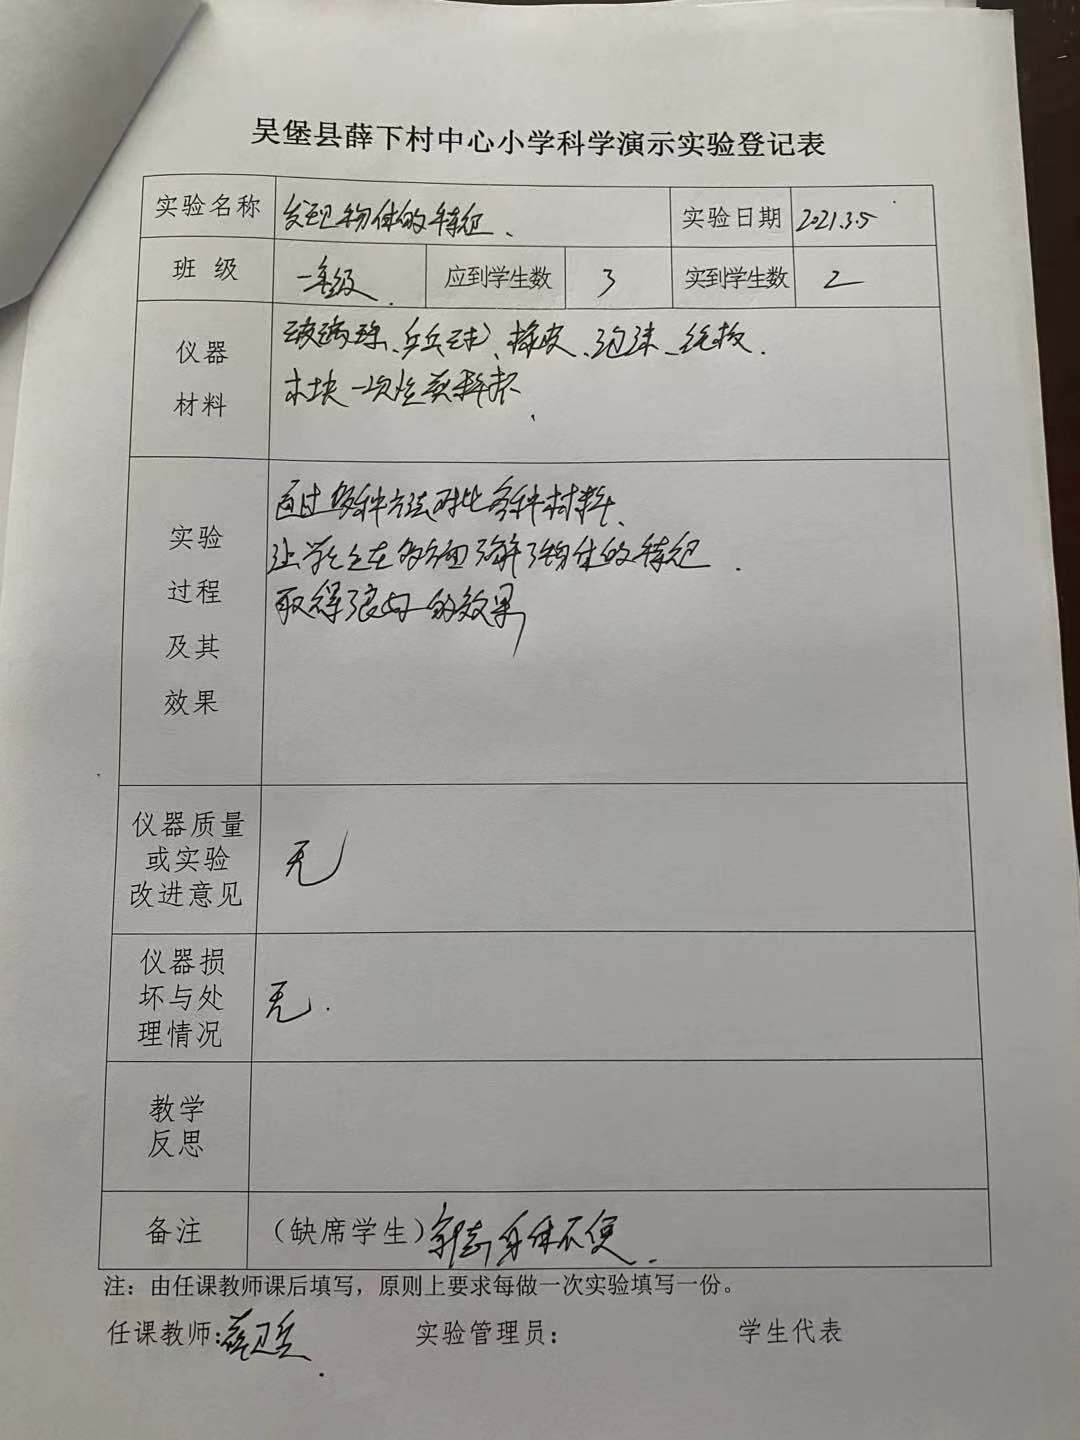 吴堡县薛下村中心小学科学演示实验登记表
实验名称 发现物体的特征、 实验日期 2021.3.5
班级 一年级. 应到学生数 3 实到学生数 2
仪器
材料
玻璃珠、乒乓球、橡皮、泡沫、纸板.
木块 一次性饮料杯、
实验
过程
及其
效果
通过多种方法对比各种材料、
让学生在多方面了解了物体的特征.
取得良好的效果,
仪器质量
或实验
改进意见
无
仪器损
坏与处
理情况
无.
教学
反思
备注 (缺席学生) 身体不便.
注: 由任课教师课后填写, 原则上要求每做一次实验填写一份。
任课教师: 薛卫兵. 实验管理员: 学生代表